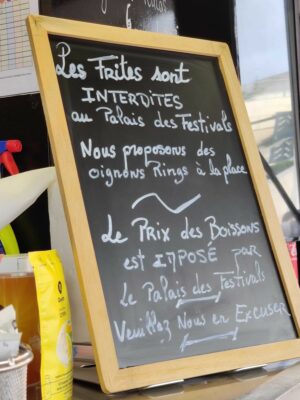 Les Frites sont
INTERDITES
au Palais des Festivals
Nous proposons des
oignons Rings à la place
Le Prix des Boissons
est IMPOSÉ par
Le Palais des Festivals
Veuillez Nous en Excuser